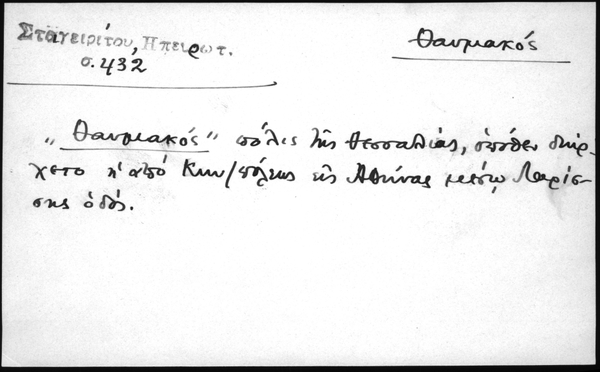 Σταγειρίτου, Ηπειρωτ.
σ. 432
Θαυμακός
"Θαυμακός" πόλις της Θεσσαλίας, οπόθεν διήρ-
χετο η από Κων/πόλεως εις Αθήνας μέσῳ Λαρίσ-
σης οδός.